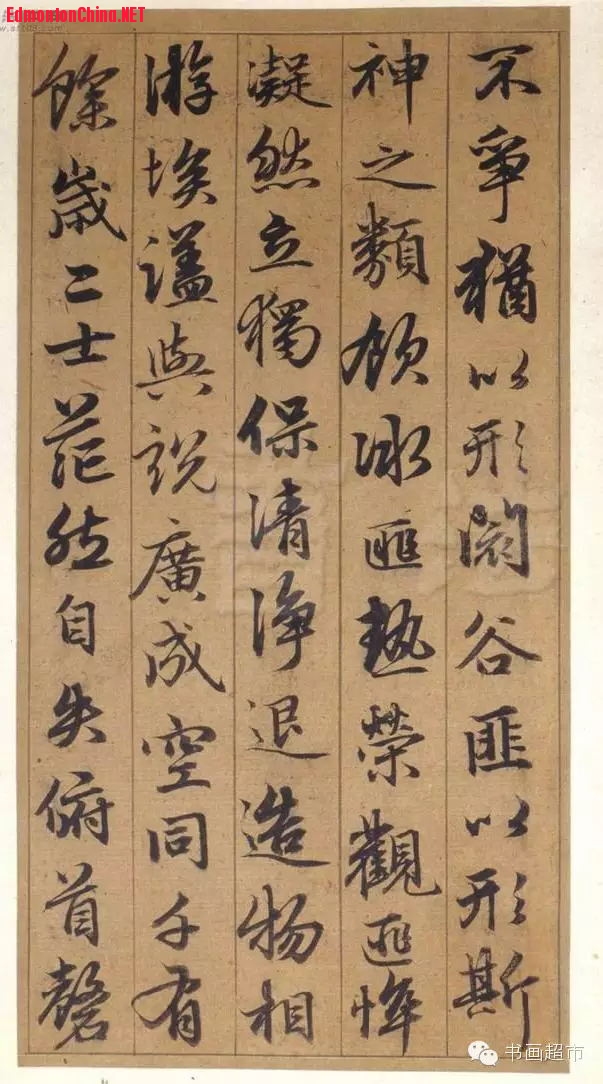 EdmontonChina.NET
不爭猶以形谷匪以形斯
神之類飲冰匪熱榮觀匪
凝然立獨保清淨退造物相
游埃與說廣成空同千有
餘歲二士茫然自失俯首磬
书画超市